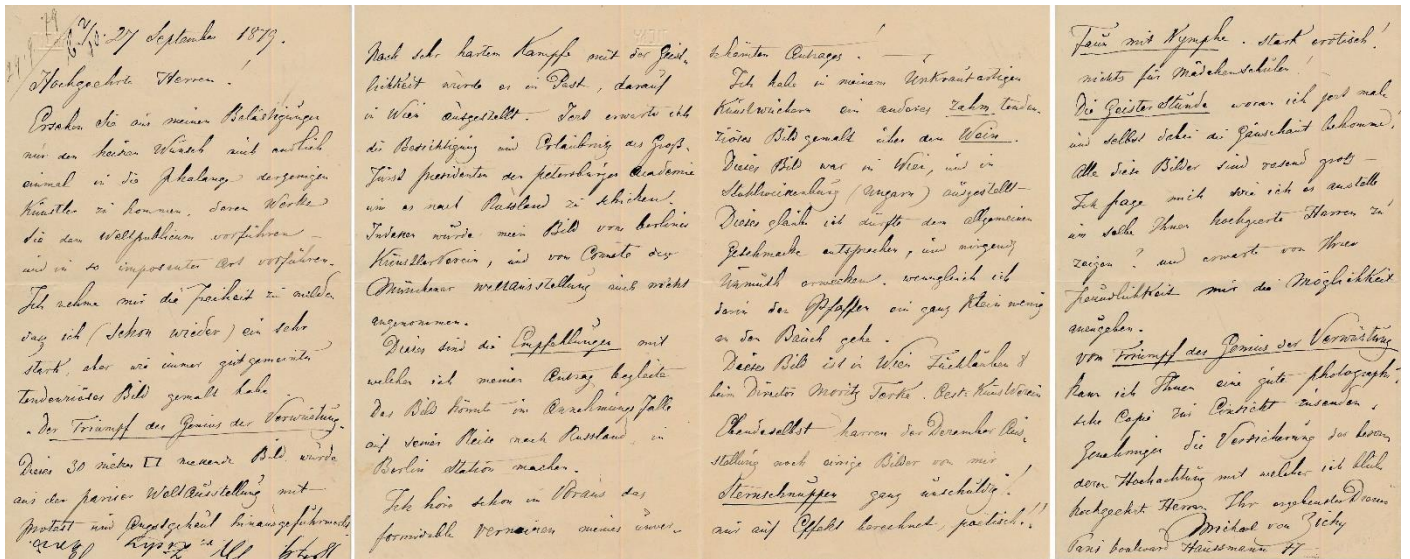 27 September 1879.
Hochgeehrte Herren!
Ersehen Sie aus meinen Belästigungen
nur den heissen Wunsch auch endlich
einmal in die Phalange derjenigen
Künstler zu kommen, deren Werke
Sie dem Weltpublicum vorführen –
und in so imposanter Art vorführen.
Ich nehme mir die Freiheit zu melden
dass ich (schon wieder) ein sehr
stark, aber wie immer gutgemeintes
tendenziöses Bild gemalt habe
"Der Triumpf des Genius der Verwüstung."
Dieses 30 meter □ messende Bild, wurde
aus der pariser Weltausstellung mit
protest und Angstgeheul hinausgeführwerkt.
Nach sehr hartem Kampfe mit der Geist-
lichkeit wurde es in Pest, darauf
in Wien ausgestellt. Jezt erwarte ich
die Besichtigung und Erlaubniss des Groß-
Fürst presidenten der petersburger Academie
um es nach Russland zu schicken.
Indessen wurde mein Bild vom berliner
Künstlerverein, und vom Comité der
Münchener weltausstellung auch nicht
angenommen.
Dieses sind die Empfehlungen mit
welchen ich meinen Antrag begleite
Das Bild könnte im Annehmungsfalle
auf seiner Reise nach Russland, in
Berlin station machen.
Ich höre schon im Voraus das
formidable Verneinen meines unver-
schämten Antrages!
Ich habe in meinem Unkrautartigen
Kunstwuchern ein anderes zahm tenden-
ziöses Bild gemalt über den Wein.
Dieses Bild war in Wien, und in
Stuhlweissenburg (Ungarn) ausgestellt –
Dieses glaube ich dürfte dem allgemeinen
Geschmacke entsprechen, und nirgends
Unmuth erwecken. wenngleich ich
darin den Pfaffen ein ganz klein wenig
an den Bauch gehe.
Dieses Bild ist in Wien Tuchlauben 8
beim Director Moritz Terke. Oestr. Kunstverein
Ebendaselbst harren der Dezember Aus-
stellung noch einige Bilder von mir
Sternschnuppen ganz unschuldig!
nur auf Effekt berechnet, poetisch!!
Faun mit Nymphe. stark erotisch!
nichts für Mädchenschulen!
Die Geisterstunde woran ich jezt male
und selbst dabei die Gänsehaut bekomme!
Alle diese Bilder sind rasend groß –
Ich frage mich wie ich es anstelle
um selbe Ihnen hochgeehrte Herren zu
zeigen? und erwarte von Ihrer
freundlichkeit mir die Möglichkeit
anzugeben.
Vom Triumpf des Genius der Verwüstung
kann ich Ihnen eine gute photographi-
sche Copie zur Einsicht zusenden.
Genehmigen die Versicherung der beson-
deren Hochachtung mit welcher ich bleibe
hochgeehrte Herren Ihr ergebenster Diener
Michael von Zichy
Paris boulevard Haussmann 77